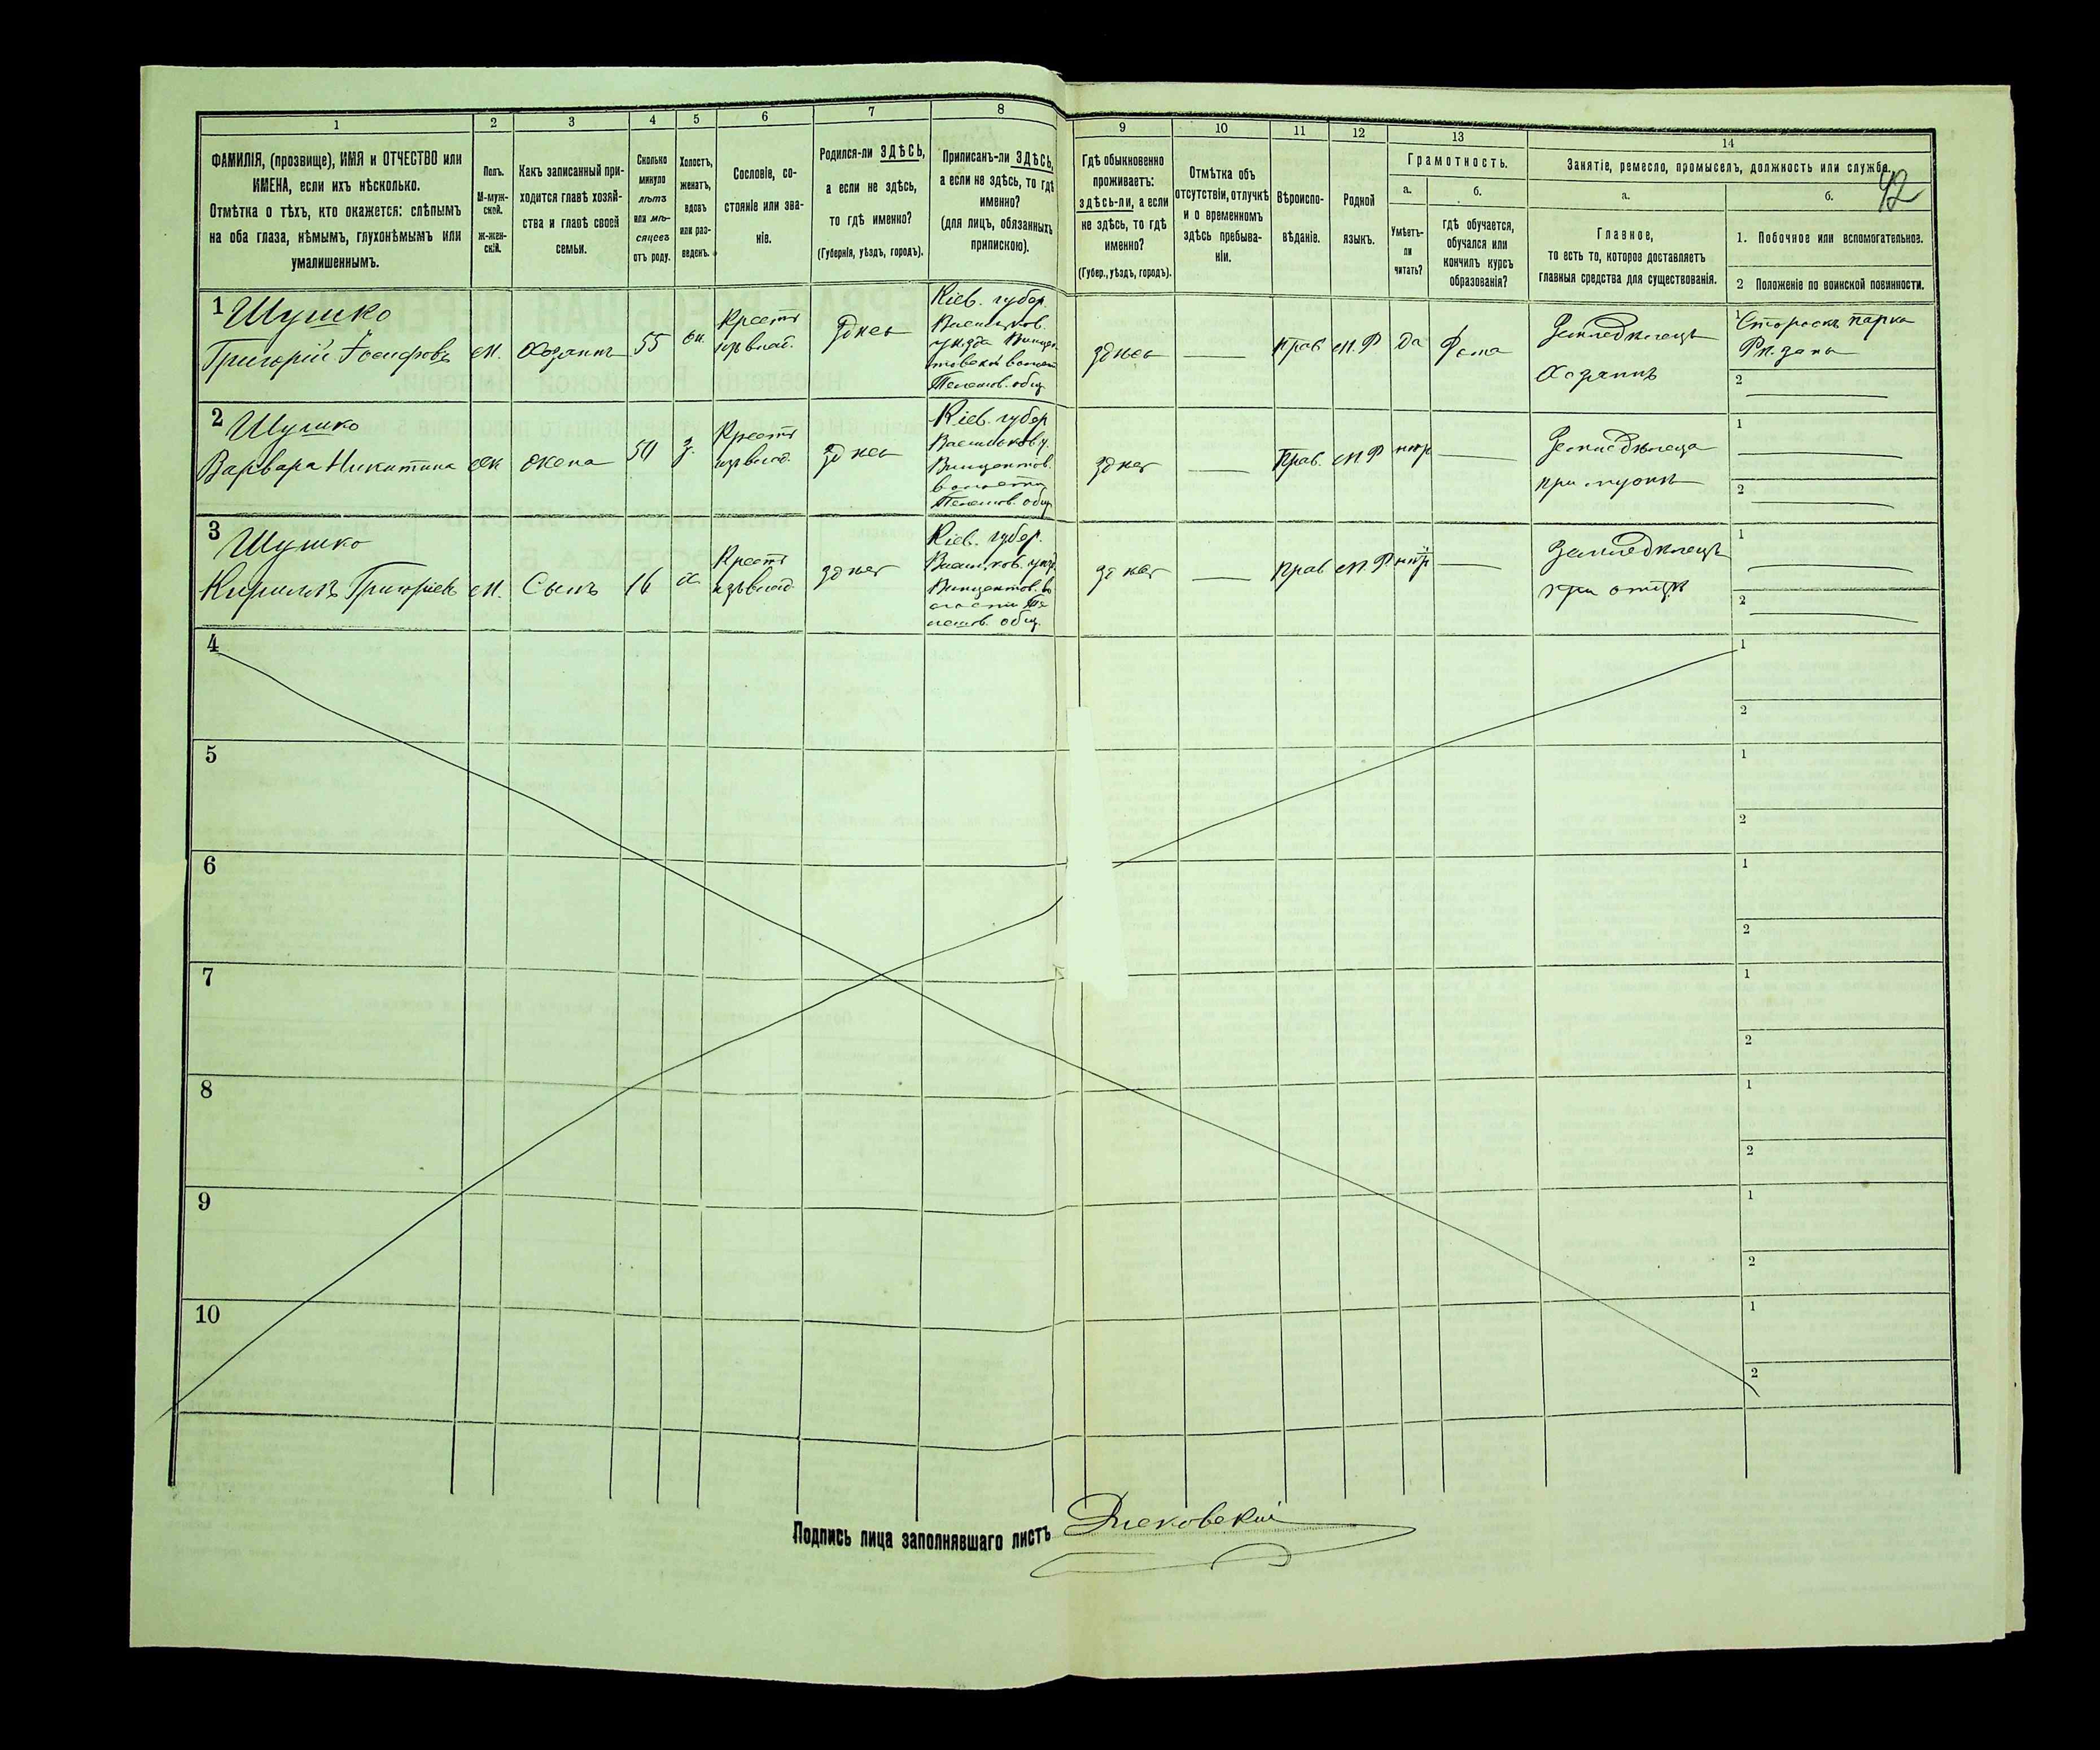 1
2
3
4
5
6
7
8
9
10
11
12
13
14
ФАМИЛІЯ, (прозвище), ИМЯ и ОТЧЕСТВО или
ИМЕНА, если ихъ нѣсколько.
Отмѣтка о тѣхъ, кто окажется: слѣпымъ
на оба глаза, нѣмымъ, глухонѣмымъ или
умалишеннымъ.
Полъ.
М-муж-
ской.
Ж-жен-
скій.
Какъ записанный при-
ходится главѣ хозяй-
ства и главѣ своей
семьи.
Сколько
минуло
лѣтъ
или мѣ-
сяцевъ
отъ роду.
Холостъ,
женатъ,
вдовъ
или раз-
веденъ.
Сословіе, со-
стояніе или зва-
ніе.
Родился-ли ЗДѢСЬ,
а если не здѣсь,
то гдѣ именно?
(Губернія, уѣздъ, городъ).
Приписанъ-ли ЗДѢСЬ,
а если не здѣсь, то гдѣ
именно?
(для лицъ, обязанныхъ
припискою).
Гдѣ обыкновенно
проживаетъ:
здѣсь-ли, а если
не здѣсь, то гдѣ
именно?
(Губер., уѣздъ, городъ).
Отмѣтка объ
отсутствіи, отлучкѣ
и о временномъ
здѣсь пребыва-
ніи.
Вѣроиспо-
вѣданіе.
Родной
языкъ.
Грамотность.
а.
Умѣетъ-
ли
читать?
б.
гдѣ обучается,
обучался или
кончилъ курсъ
образованія?
Занятіе, ремесло, промыселъ, должность или служба.
42
а.
Главное,
то есть то, которое доставляетъ
главныя средства для существованія.
б.
1. Побочное или вспомогательное.
2 Положеніе по воинской повинности.
1 Шушко
Григорій Іосифовъ
м.
Хозяинъ
55
ж.
Крестъ
изъ влад.
Здѣсь
Кіев. губер.
Васильков.
уѣзда
общ.
здѣсь
Прав
М.Р
да
Земледѣлецъ
Хозяинъ
1
Сторожъ парка
2
2 Шушко
Варвара Никитина
ж
жена
50
з.
Крестъ
изъ влад.
Здѣсь
Кіев. губер
Васильков у.
волости
общ
здѣсь
Прав.
М Р
нѣт
Земледѣлеца
при мужѣ
1
2
3 Шушко
Кириллъ Григорьевъ
м.
Сынъ
16
х
Крестъ
изъ влад
здѣсь
Кіев. губер.
Васильков. уѣзд
общ.
здѣсь
Прав
М. Р
нѣт
Земледѣлецъ
при отцѣ
1
2
4
1
2
5
1
2
6
1
2
7
1
2
8
1
2
9
1
2
10
1
2
Подпись лица заполнявшаго листъ